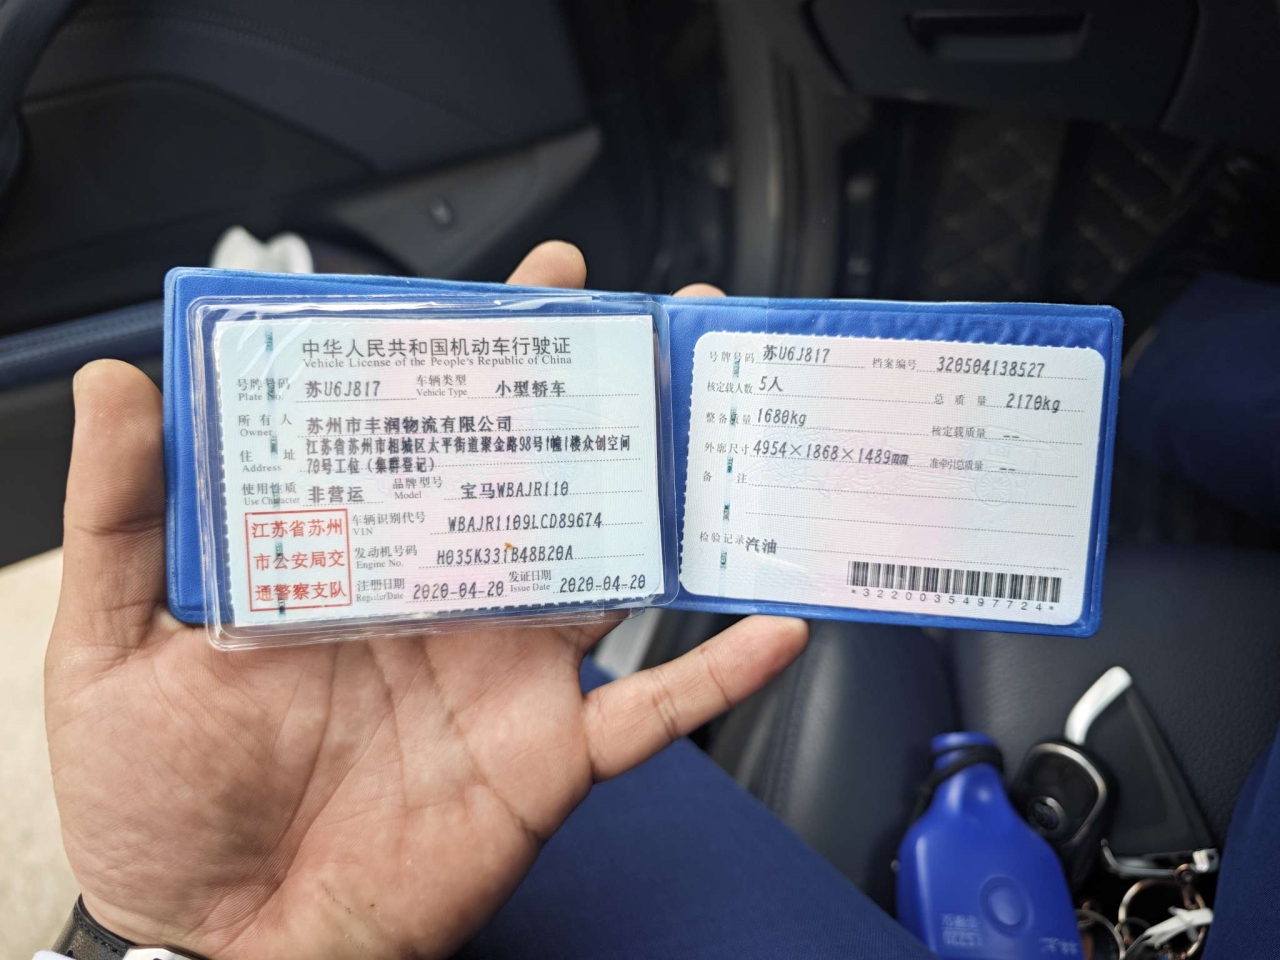 中华人民共和国机动车行驶证
Vehicle License of the People's Republic of China
号牌号码 苏U6J817 车辆类型 小型轿车
Plate No. Vehicle Type
所有人 苏州市丰润物流有限公司
Owner
住址 江苏省苏州市相城区太平街道聚金路98号1幢1楼众创空间
Address 70号工位（集群登记）
使用性质 非营运 品牌型号 宝马WBAJR110
Use Character Model
江苏省苏州
市公安局交
通警察支队
车辆识别代号 WBAJR1109LCD89674
VIN
发动机号码 H035K331B48B20A
Engine No.
注册日期 2020-04-20 发证日期 2020-04-20
Register Date Issue Date
号牌号码 苏U6J817 档案编号 320504138527
核定载人数 5人 总质量 2170kg
整备质量 1680kg 核定载质量 --
外廓尺寸 4954×1868×1489mm 准牵引总质量 --
备注
检验记录 汽油
*3220035497724*